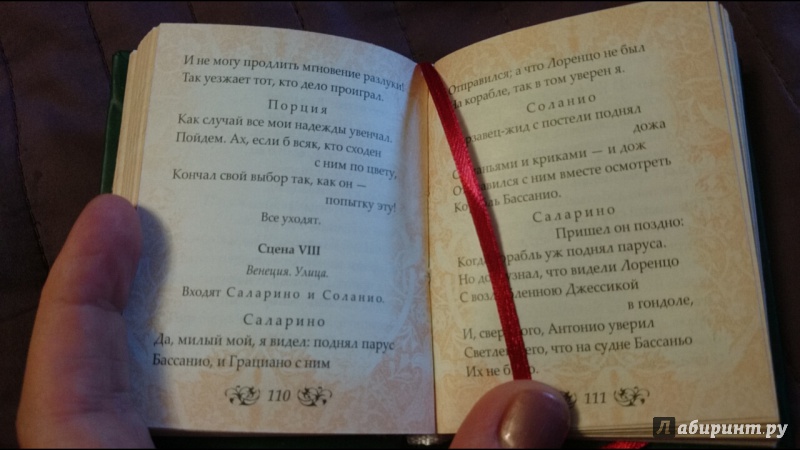 И не могу продлить мгновение разлуки!
Так уезжает тот, кто дело проиграл.
Порция
Как случай все мои надежды увенчал.
Пойдем. Ах, если б всяк, кто сходен
с ним по цвету,
Кончал свой выбор так, как он —
попытку эту!
Все уходят.
Сцена VIII
Венеция. Улица.
Входят Саларино и Соланио.
Саларино
Да, милый мой, я видел: поднял парус
Бассанио, и Грациано с ним
110
Отправился; а что Лоренцо не был
На корабле, так в том уверен я.
Соланио
с постели поднял
дожа
и криками — и дож
с ним вместе осмотреть
Бассанио.
Саларино
Пришел он поздно:
Когда уж поднял паруса.
Но что видели Лоренцо
С Джессикой
в гондоле,
И, Антонио уверил
что на судне Бассаньо
Их не
111
Лабиринт.ру